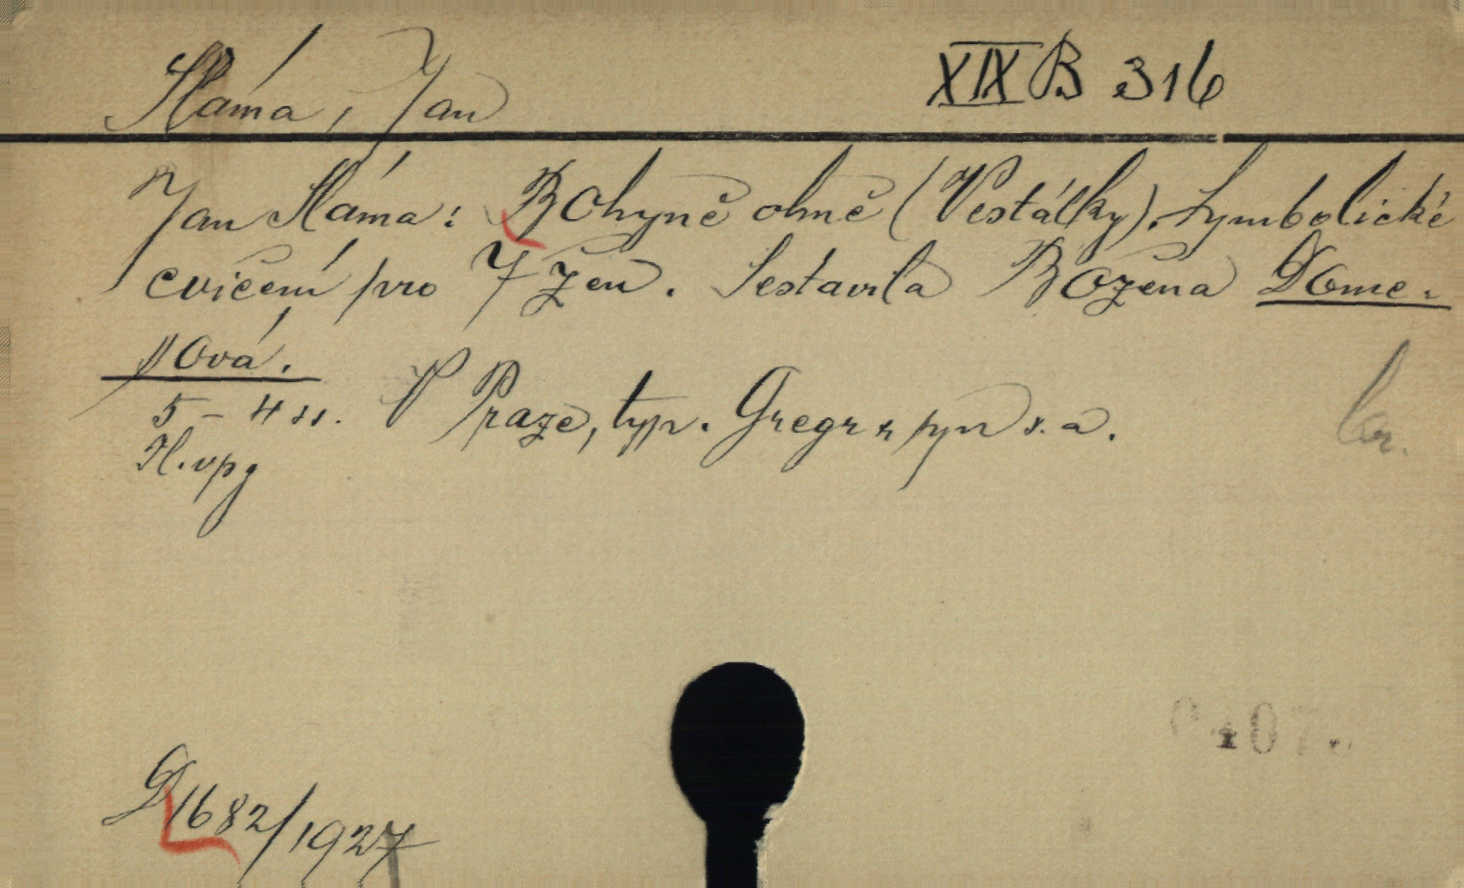 Sláma, Jan
XIX B 316
Jan Sláma: Bohyně ohně (Vestálky). Symbolické
cvičení pro 7 žen. Sestavila Božena Dome-
sová.
5 - 4 ss. V Praze, typ. Gregr & syn s. a.
H. vpg
D 1682/1927